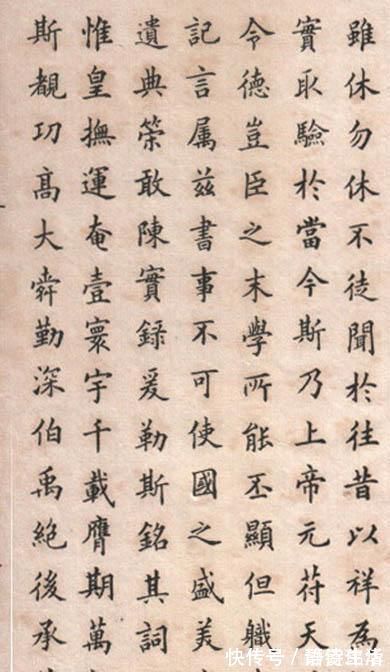 雖休勿休不徒聞於往昔以祥為
實取驗於當今斯乃上帝元苻天
令德豈臣之末學所能丕顯但軄
記言属兹書事不可使國之盛美
遺典策敢陳實録爰勒斯銘其詞
惟皇撫運奄壹寰宇千載膺期萬
斯覩功髙大舜勤深伯禹絶後承
快传号 /